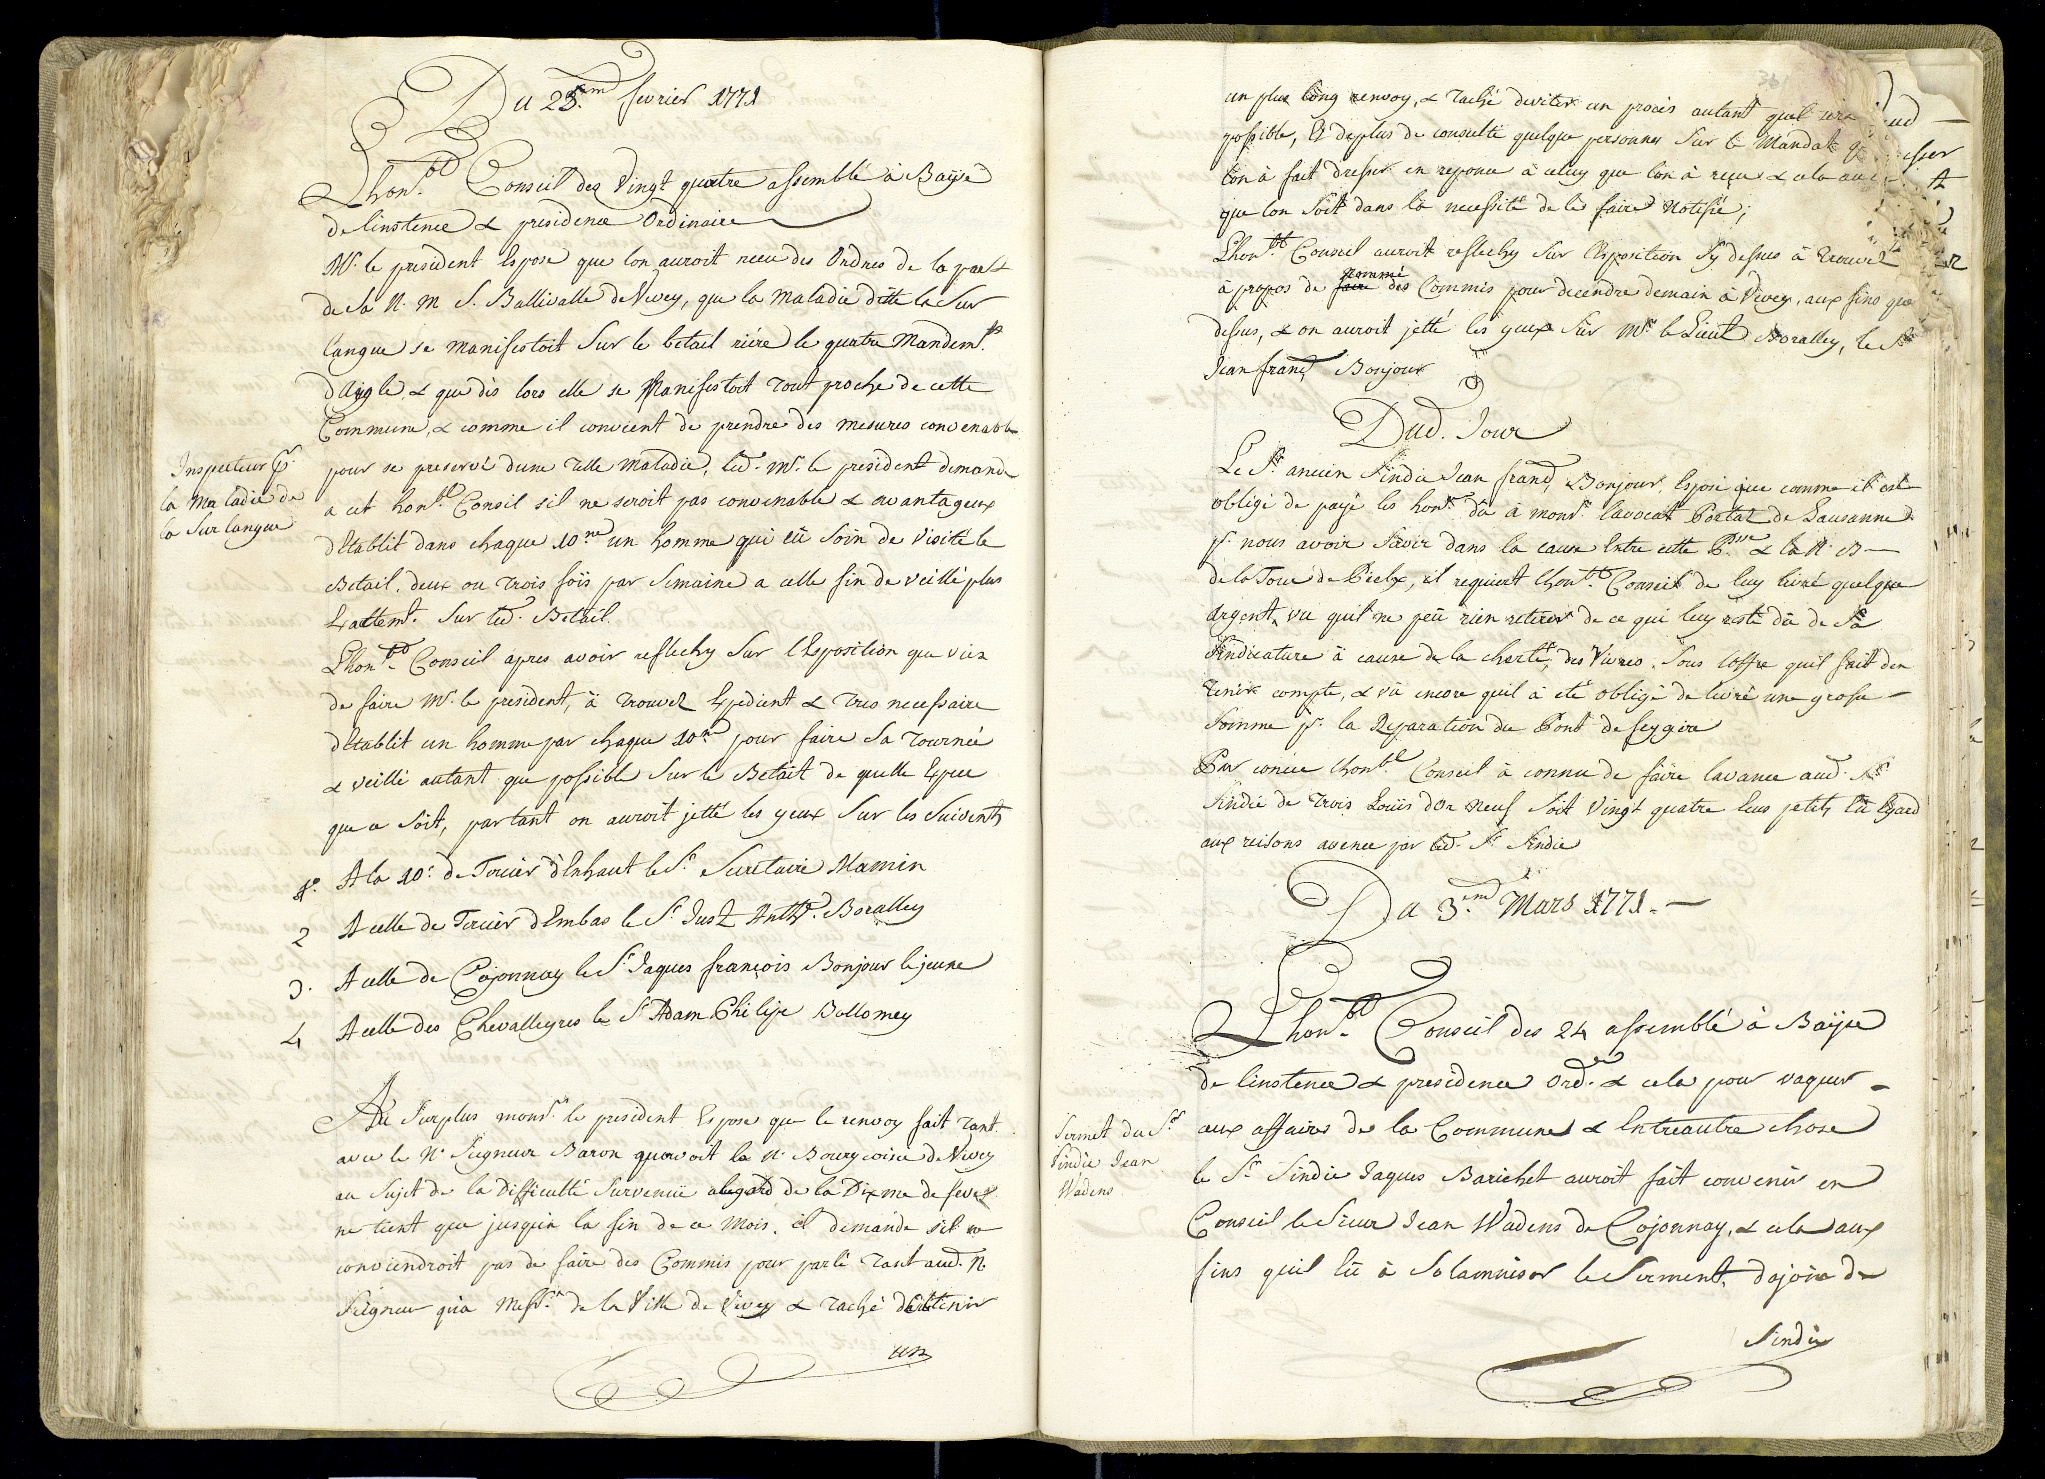 Du 25.me fevrier 1771
Lhon.ble Conseil des Vingt quatre assemblé à Baÿse
de linstence & presidence Ordinaire
Mr. le president Expose que lon auroit receu des Ordres de la part
de Sa N. M S. Ballivalle de Vivey, que la Maladie ditte la Sur
langue se manifestoit Sur le betail riére le quatre Mandem.ts
dAigle, & que dès lors elle se Manifestoit Tout proche de cette
Commune, & comme il convient de prendre des mesures convenable
Inspecteur p.r
la Maladie de
la Surlangue
pour se preservé dune Telle Maladie, led. Mr. le president demande
a cet hon.ble Conseil sil ne seroit pas convenable & avantageux
dEtablit dans chaque 10.ne un homme qui eû Soin de Visité le
Betail. deux ou Trois fois par Semaine a celle fin de veillé plus
Exactem.t Sur led. Betail.
Lhon.ble Conseil apres avoir reflechy Sur lExposition que vien
de faire Mr. le president, à Trouvez Expedient & Tres necessaire
dEtablit un homme par chaque 10.ne pour faire Sa Tournée
& veillé autant que possible Sur le Betail de quelle Espee
que ce Soit, partant on auroit jetté les yeux Sur les Suivents
1o. A la 10.e de Tercier dEnhaut le Sr. Secretaire Mamin
2 A celle de Tercier dEmbas le Sr. Just Anth.e Boralley
3. A celle de Cojonnay le Sr. Jaques françois Bonjour le jeune
4 A celle des Chevalleyres le Sr. Adam Philipe Bollomey
Au Surplus mons.r le president Expose que le renvoy fait Tant
avec le N. Seigneur Baron quavoit la N. Bourgeoisie de Vivey
au Sujet de la Difficulté Survenüe alegard de la Dixme de feves
ne tient que jusquà la fin de ce Mois. il demande sil ne
conviendroit pas de faire des Commis pour parlé Tant aud. N.
Seigneur quà Mess.rs de la Ville de Vivey & Taché dObtenir
un
un plus long renvoy, & Taché deviter un procès autant quil sera
possible, Et deplus de consulté quelque personnes Sur le Mandat
lon à fait dresser en reponce à celuy que lon à reçu & cela
que lon Soit dans la necessité de le faire Notifié;
Lhon.ble Conseil auroit reflechy Sur lExposition Sy dessus à Trouvez
à propos de faire nommé des Commis pour decendre demain à Vivey, aux fins que
dessus, & on auroit jetté les yeux Sur Mr. le Lieut Boralley, le Sr.
Jean franç Bonjour
Dud. Jour
Le Sr. ancien Sindic Jean franç Bonjour, Expose que comme il est
obligé de payé les hon.rs dû à mons.r lavocat Portaz de Lausanne
p.r nous avoir Servir dans la cause Entre cette & la N. B
de la Tour de Peilx, il requiert lhon.ble Conseil de luy livré quelque
argent, vu quil ne peû rien retirer de ce qui luy reste dû de Sa
Sindicature à cause de la cherté, des Vivres. Sous loffre quil fait den
Tenir compte, & vû encore quil à eté obligé de livré une grosse
Somme p.r la Reparation du Pont de feygire
Par contre lhon.ble Conseil à connu de faire lavance aud. Sr.
Sindic de Trois Louis dOr neuf Soit Vingt quatre Ecus petits Eû Egard
aux raisons avencé par led. Sr. Sindic
Du 3.me Mars 1771.
Lhon.ble Conseil des 24 assemblé à Baÿse
de linstence & presidence Ord.re & cela pour vaquer
Serment du Sr.
Sindic Jean
Wadens
aux affaires de la Commune & Entreautre chose
le Sr. Sindic Jaques Barichet auroit fait convenir en
Conseil le Sieur Jean Wadens de Cojonnay, & cela aux
fins quil Eû à Solamniser le Serment, dajoin de
Sindic